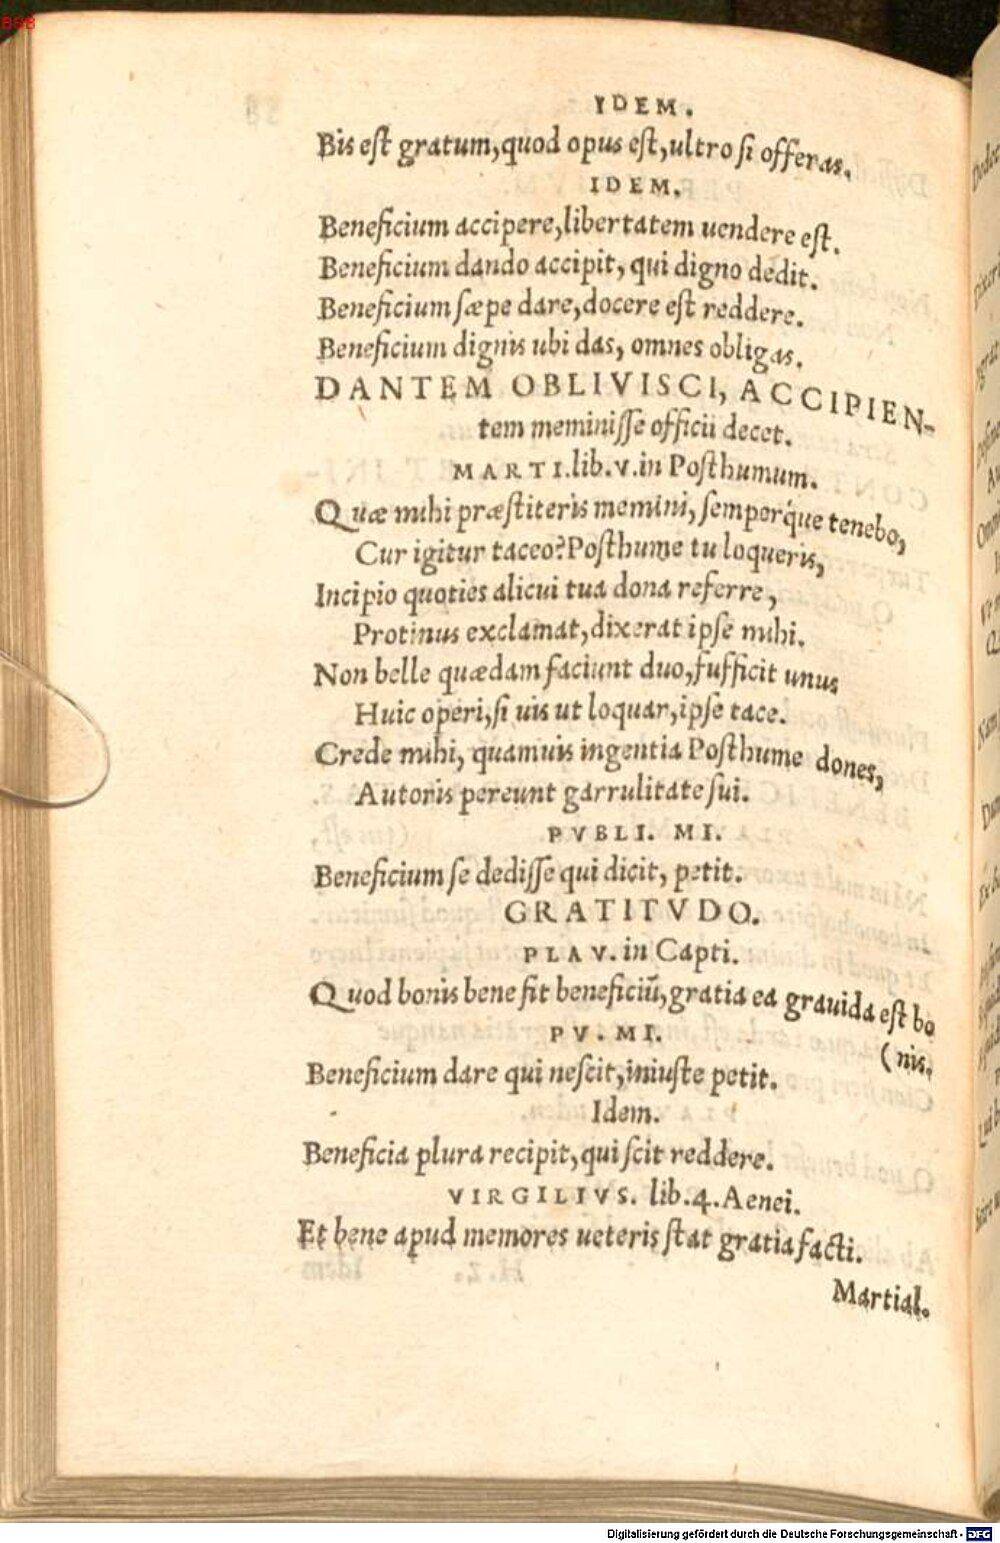 IDEM.
Bis est gratum, quod opus est, ultro si offeras.
IDEM.
Beneficium accipere, libertatem uendere est.
Beneficium dando accipit, qui digno dedit.
Beneficium sæpe dare, docere est reddere.
Beneficium dignis ubi das, omnes obligas.
DANTEM OBLIVISCI, ACCIPIEN-
tem meminisse officii decet.
MARTI. lib. v. in Posthumum.
Quæ mihi præstiteris memini, semperq́ue tenebo,
Cur igitur taceo? Posthume tu loqueris,
Incipio quoties alicui tua dona referre,
Protinus exclamat, dixerat ipse mihi.
Non belle quædam faciunt duo, sufficit unus
Huic operi, si uis ut loquar, ipse tace.
Crede mihi, quamuis ingentia Posthume dones,
Autoris pereunt garrulitate sui.
PVBLI. MI.
Beneficium se dedisse qui dicit, petit.
GRATITVDO.
PLAV. in Capti.
Quod bonis bene fit beneficiũ, gratia ea grauida est bo
(nis.
PV. MI.
Beneficium dare qui nescit, iniuste petit.
Idem.
Beneficia plura recipit, qui scit reddere.
VIRGILIVS. lib. 4. Aenei.
Et bene apud memores ueteris stat gratia facti.
Martial.
Digitalisierung gefördert durch die Deutsche Forschungsgemeinschaft - DFG